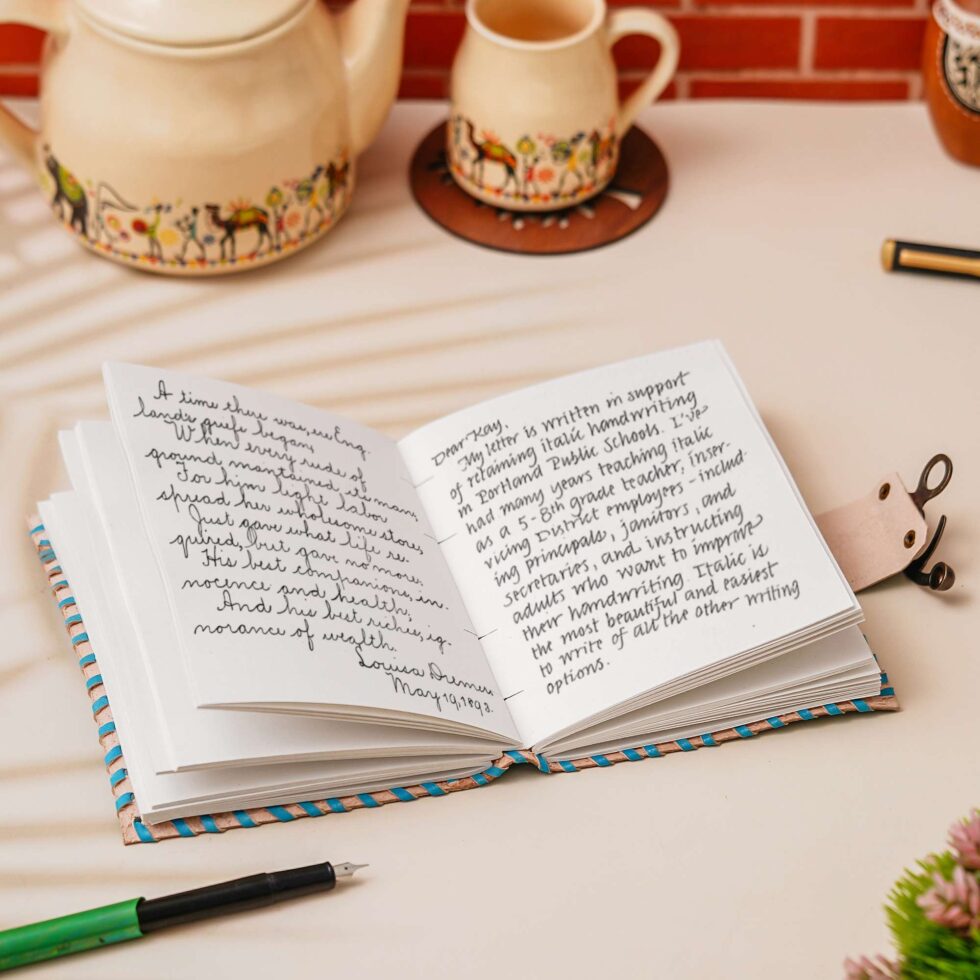 A time there was, ere Eng-
land's griefs began,
When every rude of
ground maintained its man;
For him light labor
spread her wholesome store,
Just gave what life re-
quired, but gave no more;
His best companions, in-
nocence and health;
And his best riches, ig-
norance of wealth.
Louisa Diemer
May 19, 1893.
Dear Kay,
My letter is written in support
of retaining italic handwriting
in Portland Public Schools. I've
had many years teaching italic
as a 5-8th grade teacher, inser-
vicing District employers - includ-
ing principals, janitors, and
secretaries, and instructing
adults who want to improve
their handwriting. Italic is
the most beautiful and easiest
to write of all the other writing
options.